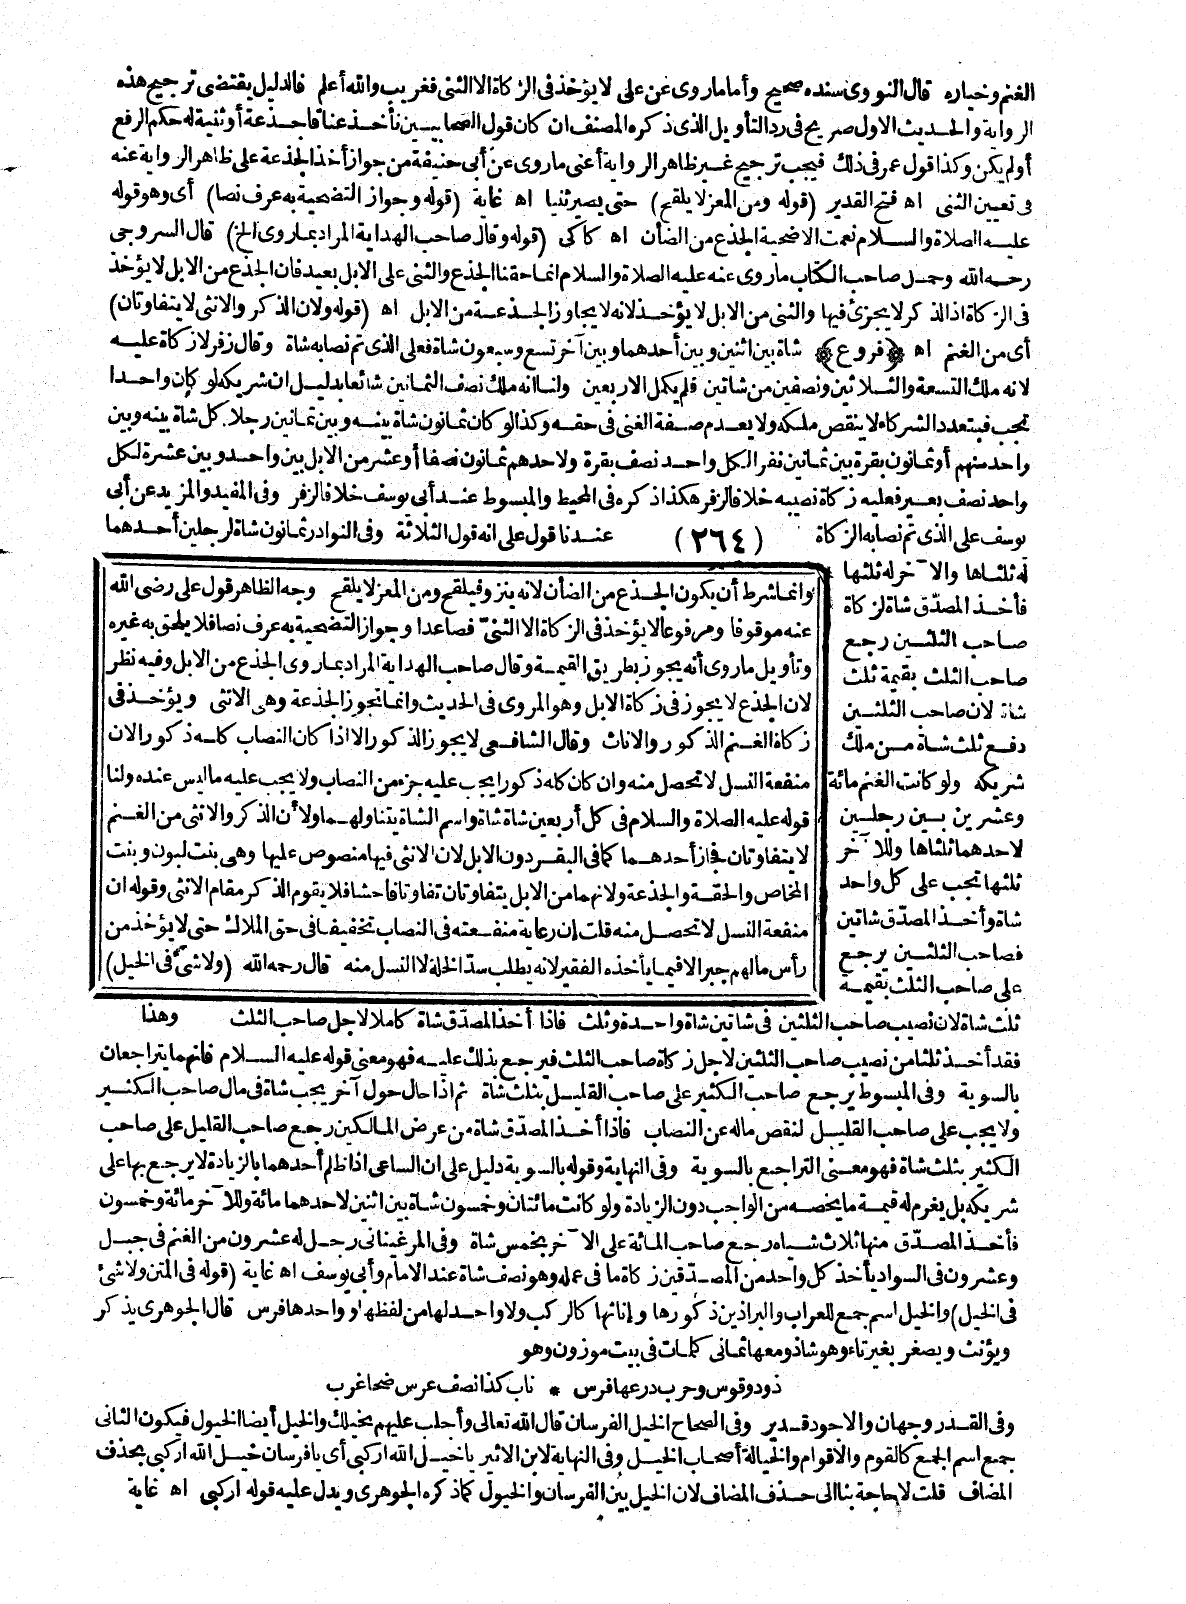 الغنم وخياره قال النووى سنده صحيح وأما ما روى عن على لا يؤخذ فى الزكاة الا الثنى فغريب والله أعلم فالدليل يقتضى ترجيح هذه
الرواية والحديث الاول صريح فى رد التأويل الذى ذكره المصنف ان كان قول الصحابيين نأخذ عناقا جذعة أو ثنية له حكم الرفع
أو لم يكن وكذا قول عمر فى ذلك فيجب ترجيح غير ظاهر الرواية أعنى ما روى عن أبى حنيفة من جواز أخذ الجذعة على ظاهر الرواية عنه
فى تعيين الثنى اه فتح القدير (قوله ومن المعز لا يلقح) حتى يصير ثنيا اه غاية (قوله وجواز التضحية به عرف نصا) أى وهو قوله
عليه الصلاة والسلام نعمت الاضحية الجذع من الضأن اه كاكى (قوله وقال صاحب الهداية المراد بما روى الخ) قال السروجى
رحمه الله وحمل صاحب الكتاب ما روى عنه عليه الصلاة والسلام انما حقنا الجذع والثنى على الابل بعيد فان الجذع من الابل لا يؤخذ
فى الزكاة اذ الذكر لا يجزئ فيها والثنى من الابل لا يؤخذ لانه لا يجاوز الجذعة من الابل اه (قوله ولان الذكر والانثى لا يتفاوتان)
أى من الغنم اه ﴿فروع﴾ شاة بين اثنين وبين أحدهما وبين آخر تسع وسبعون شاة فعلى الذى تم نصابه شاة وقال زفر لا زكاة عليه
لانه ملك التسعة والثلاثين ونصفين من شاتين فلم يكمل الاربعين ولنا انه ملك نصف الثمانين شائعا بدليل ان شريكه لو كان واحدا
تجب فبتعدد الشركاء لا ينقص ملكه ولا يعدم صفة الغنى فى حقه وكذا لو كان ثمانون شاة بينه وبين ثمانين رجلا كل شاة بينه وبين
واحد منهم أو ثمانون بقرة بين ثمانين نفر الكل واحد نصف بقرة ولاحدهم ثمانون نصفا أو عشر من الابل بين واحد وبين عشرة لكل
واحد نصف بعير فعليه زكاة نصيبه خلافا لزفر هكذا ذكره فى المحيط والمبسوط عند أبى يوسف خلافا لزفر وفى المفيد والمزيد عن أبى
يوسف على الذى تم نصابه الزكاة (٢٦٤) عندنا قول على انه قول الثلاثة وفى النوادر ثمانون شاة لرجلين أحدهما
له ثلثاها والآخر له ثلثها
فأخذ المصدّق شاة لزكاة
صاحب الثلثين رجع
صاحب الثلث بقيمة ثلث
شاة لان صاحب الثلثين
دفع ثلث شاة من ملك
شريكه ولو كانت الغنم مائة
وعشرين بين رجلين
لاحدهما ثلثاها وللآخر
ثلثها تجب على كل واحد
شاة وأخذ المصدّق شاتين
فصاحب الثلثين يرجع
على صاحب الثلث بقيمة
وانما شرط أن يكون الجذع من الضأن لانه ينزو فيلقح ومن المعز لا يلقح وجه الظاهر قول على رضى الله
عنه موقوفا ومرفوعا لا يؤخذ فى الزكاة الا الثنىّ فصاعدا وجواز التضحية به عرف نصا فلا يلحق به غيره
وتأويل ما روى أنه يجوز بطريق القيمة وقال صاحب الهداية المراد بما روى الجذع من الابل وفيه نظر
لان الجذع لا يجوز فى زكاة الابل وهو المروى فى الحديث وانما تجوز الجذعة وهى الانثى ويؤخذ فى
زكاة الغنم الذكور والاناث وقال الشافعى لا يجوز الذكور الا اذا كان النصاب كله ذكورا لان
منفعة النسل لا تحصل منه وان كان كله ذكورا يجب عليه جزء من النصاب ولا يجب عليه ما ليس عنده ولنا
قوله عليه الصلاة والسلام فى كل أربعين شاة شاة واسم الشاة يتناولهما ولأن الذكر والانثى من الغنم
لا يتفاوتان فجاز أحدهما كما فى البقر دون الابل لان الانثى فيها منصوص عليها وهى بنت لبون وبنت
المخاض والحقة والجذعة ولانهما من الابل يتفاوتان تفاوتا فاحشا فلا يقوم الذكر مقام الانثى وقوله ان
منفعة النسل لا تحصل منه قلت إن رعاية منفعته فى النصاب تخفيفا فى حق الملاك حتى لا يؤخذ من
رأس مالهم جبرا لا فيما يأخذه الفقير لانه يطلب سدّ الخلة لا النسل منه قال رحمه الله (ولا شئ فى الخيل)
ثلث شاة لان نصيب صاحب الثلثين فى شاتين شاة واحدة وثلث فاذا أخذ المصدّق شاة كاملا لاجل صاحب الثلث وهذا
فقد أخذ ثلثا من نصيب صاحب الثلثين لاجل زكاة صاحب الثلث فيرجع بذلك عليه فهو معنى قوله عليه السلام فانهما يتراجعان
بالسوية وفى المبسوط يرجع صاحب الكثير على صاحب القليل بثلث شاة ثم اذا حال حول آخر يجب شاة فى مال صاحب الكثير
ولا يجب على صاحب القليل لنقص ماله عن النصاب فاذا أخذ المصدّق شاة من عرض المالكين رجع صاحب القليل على صاحب
الكثير بثلث شاة فهو معنى التراجع بالسوية وفى النهاية وقوله بالسوية دليل على ان الساعى اذا ظلم أحدهما بالزيادة لا يرجع بها على
شريكه بل يغرم له قيمة ما يخصه من الواجب دون الزيادة ولو كانت مائتان وخمسون شاة بين اثنين لاحدهما مائة وللآخر مائة وخمسون
فأخذ المصدّق منها ثلاث شياه رجع صاحب المائة على الآخر بخمس شاة وفى المرغينانى رجل له عشرون من الغنم فى جبل
وعشرون فى السواد يأخذ كل واحد من المصدّقين زكاة ما فى عمله وهو نصف شاة عند الامام وأبى يوسف اه غاية (قوله فى المتن ولا شئ
فى الخيل) والخيل اسم جمع للعراب والبراذين ذكورها وإناثها كالركب ولا واحد لها من لفظها وواحدها فرس قال الجوهرى يذكر
ويؤنث ويصغر بغير تاء وهو شاذ ومعها ثمانى كلمات فى بيت موزون وهو
ذود وقوس وحرب درعها فرس * ناب كذا نصف عرس ضحا غرب
وفى القدر وجهان والاجود قدير وفى الصحاح الخيل الفرسان قال الله تعالى وأجلب عليهم بخيلك والخيل أيضا الخيول فيكون الثانى
جمع اسم الجمع كالقوم والاقوام والخيالة أصحاب الخيل وفى النهاية لابن الاثير يا خيل الله اركبى أى يا فرسان خيل الله اركبى بحذف
المضاف قلت لا حاجة بنا الى حذف المضاف لان الخيل بين الفرسان والخيول كما ذكره الجوهرى ويدل عليه قوله اركبى اه غاية